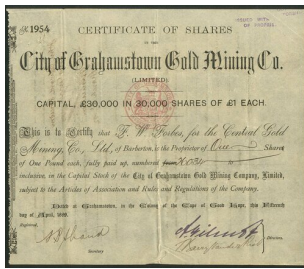 No 1954
CERTIFICATE OF SHARES
IN THE
City of Grahamstown Gold Mining Co.
(LIMITED)
CAPITAL, £30,000 IN 30,000 SHARES OF £1 EACH.
This is to Certify that F. W. Forbes, for the Central Gold
Mining Co., Ltd., of Barberton, is the Proprietor of One Shares
of One Pound each, fully paid up, numbered
inclusive, in the Capital Stock of the City of Grahamstown Gold Mining Company, Limited,
subject to the Articles of Association and Rules and Regulations of the Company.
Dated at Grahamstown, in the Colony of the Cape of Good Hope, this Fifteenth
day of April,
Registered,
Secretary